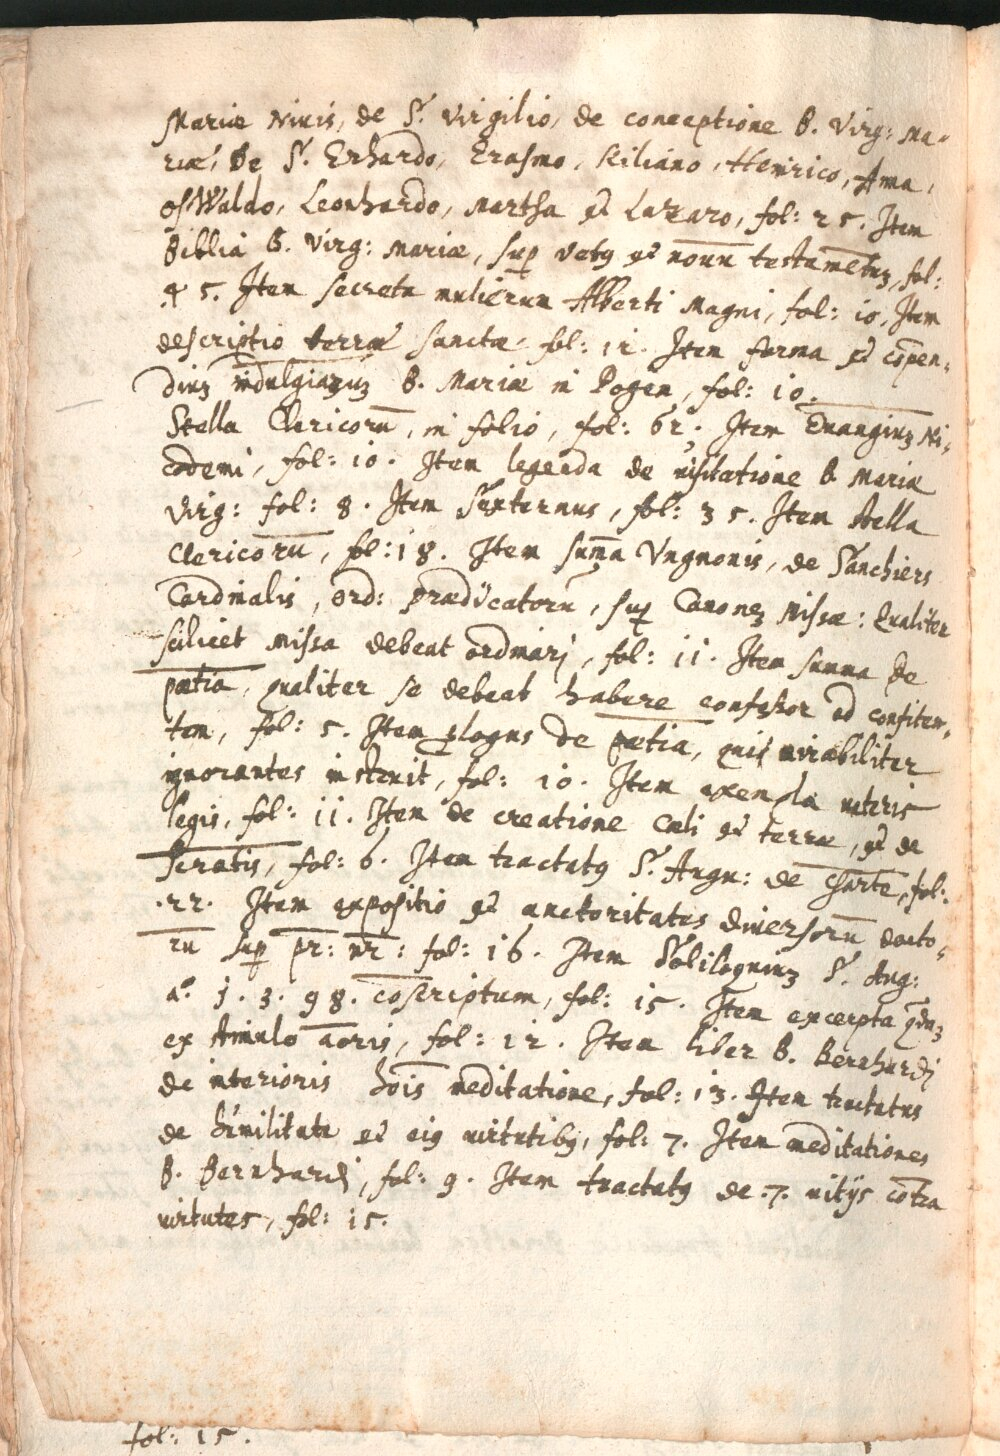 Mariæ Nivis, de S. Virgilio, de conceptione B. Virg: Ma-
riæ, De S. Erhardo, Erasmo, Kiliano, Heinrico, Anna,
osWaldo, Leonhardo, Martha et Lazaro, fol: 25. Item
Biblia B. Virg: Mariæ, sup vetꝰ et nouū testamētuȝ, fol:
45. Item secreta mulierum Alberti Magni, fol: 10, Item
descriptio terræ sanctæ fol: 12. Item forma et cōpen-
diuȝ B. Mariæ in Pogen, fol: 10.
Stella Clericorū, in folio, fol: 62. Item Ni-
codemi, fol: 10. Item legenda de visitatione B. Mariæ
Virg: fol: 8. Item Sexternus, fol: 35. Item Stella
Clericorū, fol: 18. Item sum̄a Vngnonis, de Sanchiers
Cardinalis, ord: prædicatorū, sup Canoneȝ Missæ: Qualiter
scilicet missa debeat ordinarj, fol: 11. Item summa de
pœtia, qualiter se debeat habere confessor ad confiten-
tem, fol: 5. Item ꝓlogus de pœtia, mirabiliter
ignorantes instruit, fol: 10. Item exempla veteris
legis, fol: 11. Item de creatione Cæli et terræ, et de
fol: 6. Item tractatꝰ S. Augu: de fol:
.22. Item expositio et auctoritates diuersorū docto-
rū sup pr: nr: fol: 16. Item Soliloquiuȝ S. Aug:
aº. 1. 3. 98. cōscriptum, fol: 15. Item excerpta
ex fol: 12. Item liber B. Bernhardj
de interioris hōis meditatione, fol: 13. Item tractatus
de hūilitate et eiꝰ virtutibꝰ, fol: 7. Item meditationes
B. Bernhardj, fol: 9. Item tractatꝰ de .7. vitijs cōtra
virtutes, fol: 15.
fol: 15.